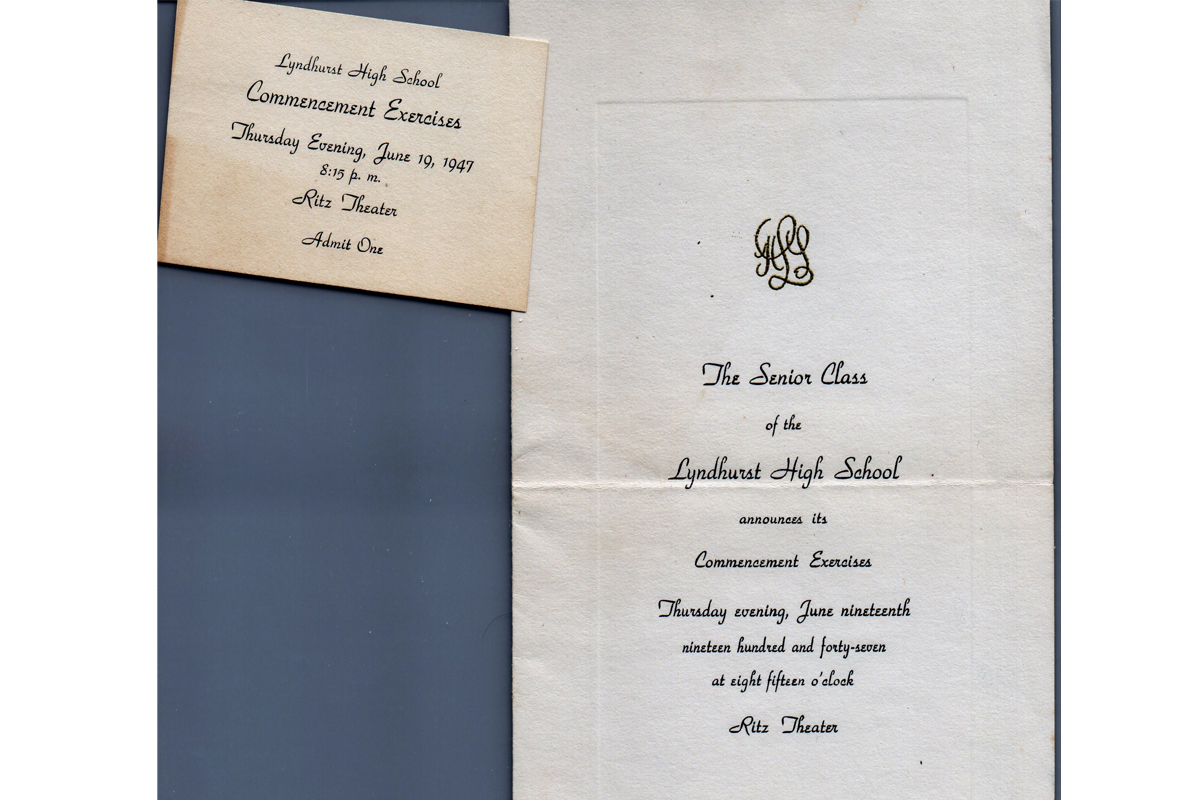 Lyndhurst High School
Commencement Exercises
Thursday Evening, June 19, 1947
8:15 p. m.
Ritz Theater
Admit One
The Senior Class
of the
Lyndhurst High School
announces its
Commencement Exercises
Thursday evening, June nineteenth
nineteen hundred and forty-seven
at eight fifteen o'clock
Ritz Theater